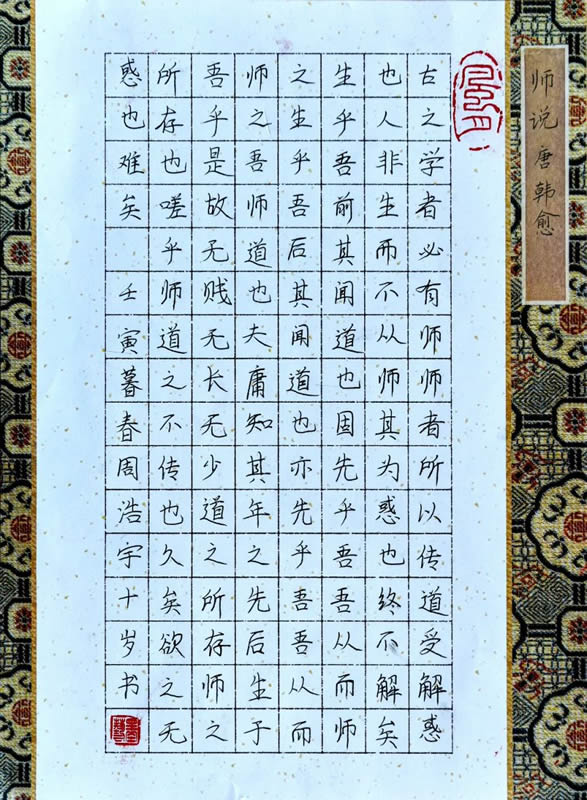 师说 唐 韩愈
古之学者必有师师者所以传道受解惑
也人非生而不从师其为惑也终不解矣
生乎吾前其闻道也固先乎吾吾从而师
之生乎吾后其闻道也亦先乎吾吾从而
师之吾师道也夫庸知其年之先后生于
吾乎是故无贱无长无少道之所存师之
所存也嗟乎师道之不传也久矣欲之无
惑也难矣 壬寅暮春周浩宇十岁书